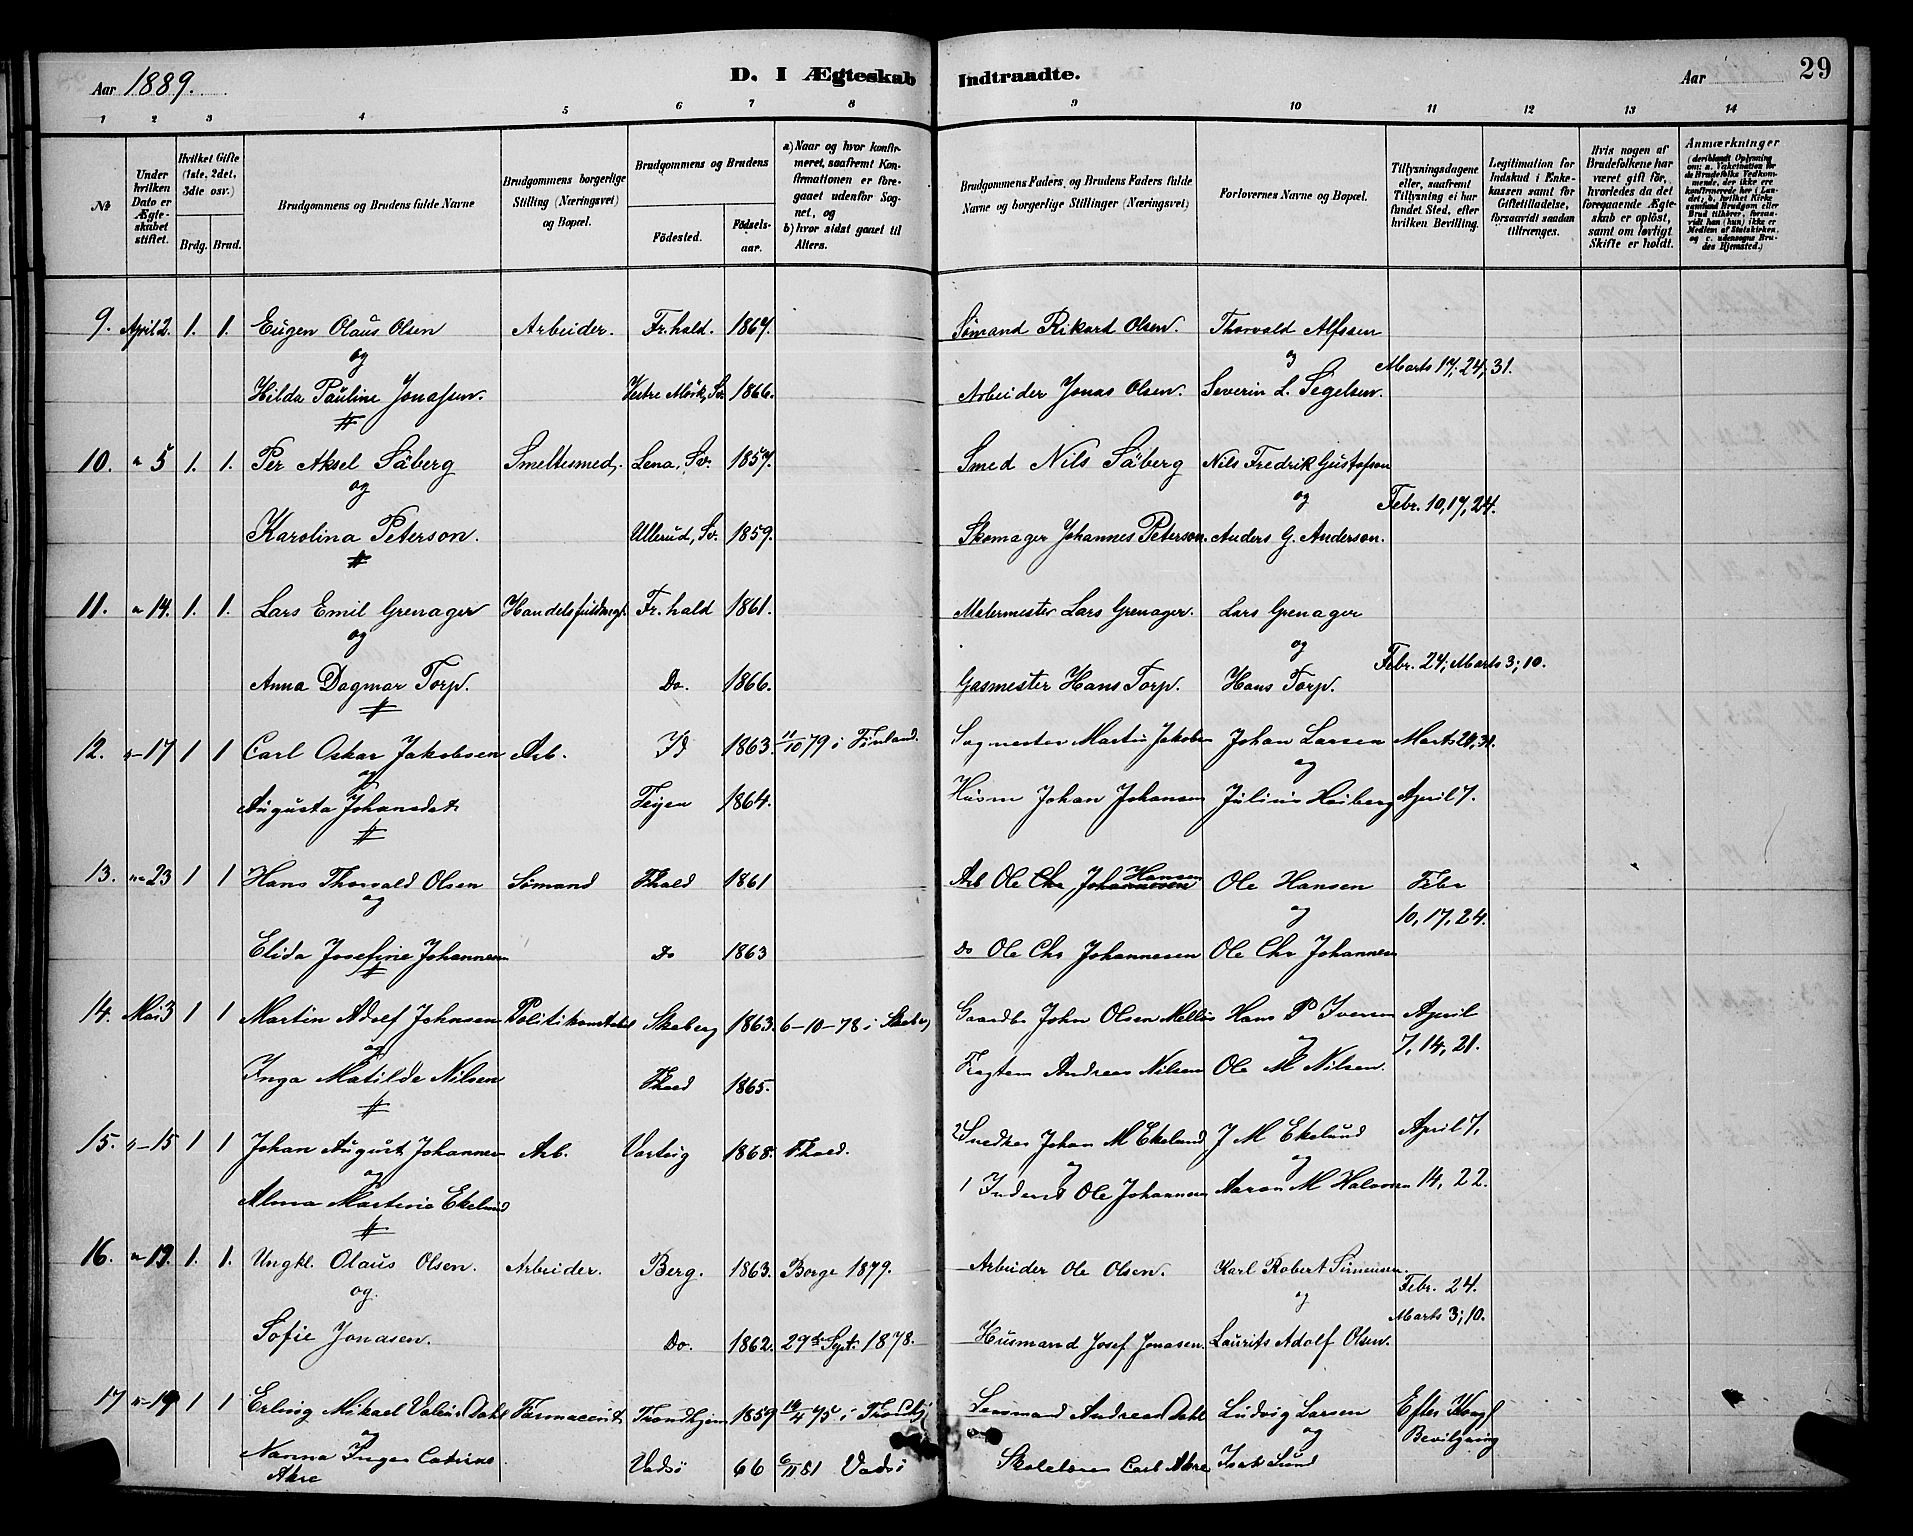 Aar 1889. D. I Ægteskab Indtraadte. Aar 29
1 2 3 4 5 6 7 8 9 10 11 12 13 14
No. | Under hvilken Dato er Ægteskabet stiftet. | Hvilket Gifte (1ste, 2det, 3die osv.) Brdg. Brud. | Brudgommens og Brudens fulde Navne | Brudgommens borgerlige Stilling (Næringsvei) og Bopæl. | Brudgommens og Brudens Fødested. Fødselsaar. | a) Naar og hvor konfirmeret, saafremt Konfirmationen er foregaaet udenfor Sognet, og b) hvor sidst gaaet til Alters. | Brudgommens Faders, og Brudens Faders fulde Navne og borgerlige Stillinger (Næringsvei) | Forlovernes Navne og Bopæl. | Tillysningsdagene eller, saafremt Tillysning ei har fundet Sted, efter hvilken Bevilling. | Legitimation for Indskud i Enkekassen samt for Giftetilladelse, forsaavidt saadan tiltrænges. | Hvis nogen af Brudefolkene har været gift før, hvorledes da det foregaaende Ægteskab er opløst, samt om lovligt Skifte er holdt. | Anmærkninger (deriblandt Oplysning om: a. Vaksination for de Brudefolks Vedkommende, der ikke ere konfirmerede her i Landet; b. hvilket Kirkesamfund Brudgom eller Brud tilhører, forsaavidt han (hun) ikke er Medlem af Statskirken, og c. udensogns Brudes Hjemsted.)
9. April 2. 1. 1. Eugen Olaus Olsen Arbeider. Fr.hald. 1864. Sømand Rikard Olsen. Thorvald Alfssen
og og Marts 17, 24, 31.
Hilda Pauline Jonassen. Vestre Mörk, Sv. 1866. Arbeider Jonas Olsen. Severin L. Segelsen.
10. " 5 1. 1. Per Aksel Säberg Smeltesmed. Lena, Sv. 1857. Smed Nils Säberg Nils Fredrik Gustafson
og og Febr. 10, 17, 24.
Karolina Peterson. Ullerud, Sv. 1859. Skomager Johannes Peterson. Anders G. Anderson.
11. " 14. 1. 1. Lars Emil Grenager Fr.hald 1861. Malermester Lars Grenager. Lars Grenager
og og Febr. 24; Marts 3; 10.
Anna Dagmar Torp. Do. 1866. Gasmester Hans Torp. Hans Torp.
12. " 17 1 1 Carl Oskar Jakobsen Arb. Id 1863. 11/10 79 i Finland. Sagmester Martin Jakobs Johan Larsen Marts 24, 31.
og og
Augusta Johansdat. 1864. Husm Johan Johansen Julius Heiberg April 7.
13. " 23 1 1 Hans Thorvald Olsen Sømand Fhald 1861 Arb Ole Chr Johannesen Hansen Ole Hansen Febr
og og 10, 17, 24.
Elida Josefine Johannesen Do 1863 Do Ole Chr Johannesen Ole Chr Johannesen
14. Mai 3 1 1 Martin Adolf Johnsen Politikonstabel Skeberg 1863. 6-10-78 i Skeberg Gaardbr John Olsen Hans P Iversen April
og og 7, 14, 21.
Inga Matilde Nilsen Fhald 1865. Andreas Nilsen Ole M Nilsen.
15. " 15 1 1 Johan August Johannesen Arb. Varteig 1868. Fhald. 2 Snedker Johan M Ekelund J M Ekelund April 7,
og og og
Alma Martine Ekelund 1 Inderst Ole Johannesen Aaron M Halvorsen 14, 22.
16. " 19. 1. 1. Ungkl. Olaus Olsen. Arbeider. Berg. 1863. Borge 1879. Arbeider Ole Olsen. Karl Robert Simensen. Febr. 24.
og. og Marts 3; 10.
Sofie Jonasen. Do. 1862. 29de Sept. 1878. Husmand Josef Jonasen. Laurits Adolf Olsen.
17 " 19 1 1 Erling Mikael Valeur Dahl Farmaceut Trondhjem 1859 Lensmand Andreas Dahl Ludvig Larsen Efter Kongl
og og Bevilgning
Nanna Inger Catrine Akre Vadsö 66 6/11 81 Vadsö Skolelærer Carl Akre Isak Lund